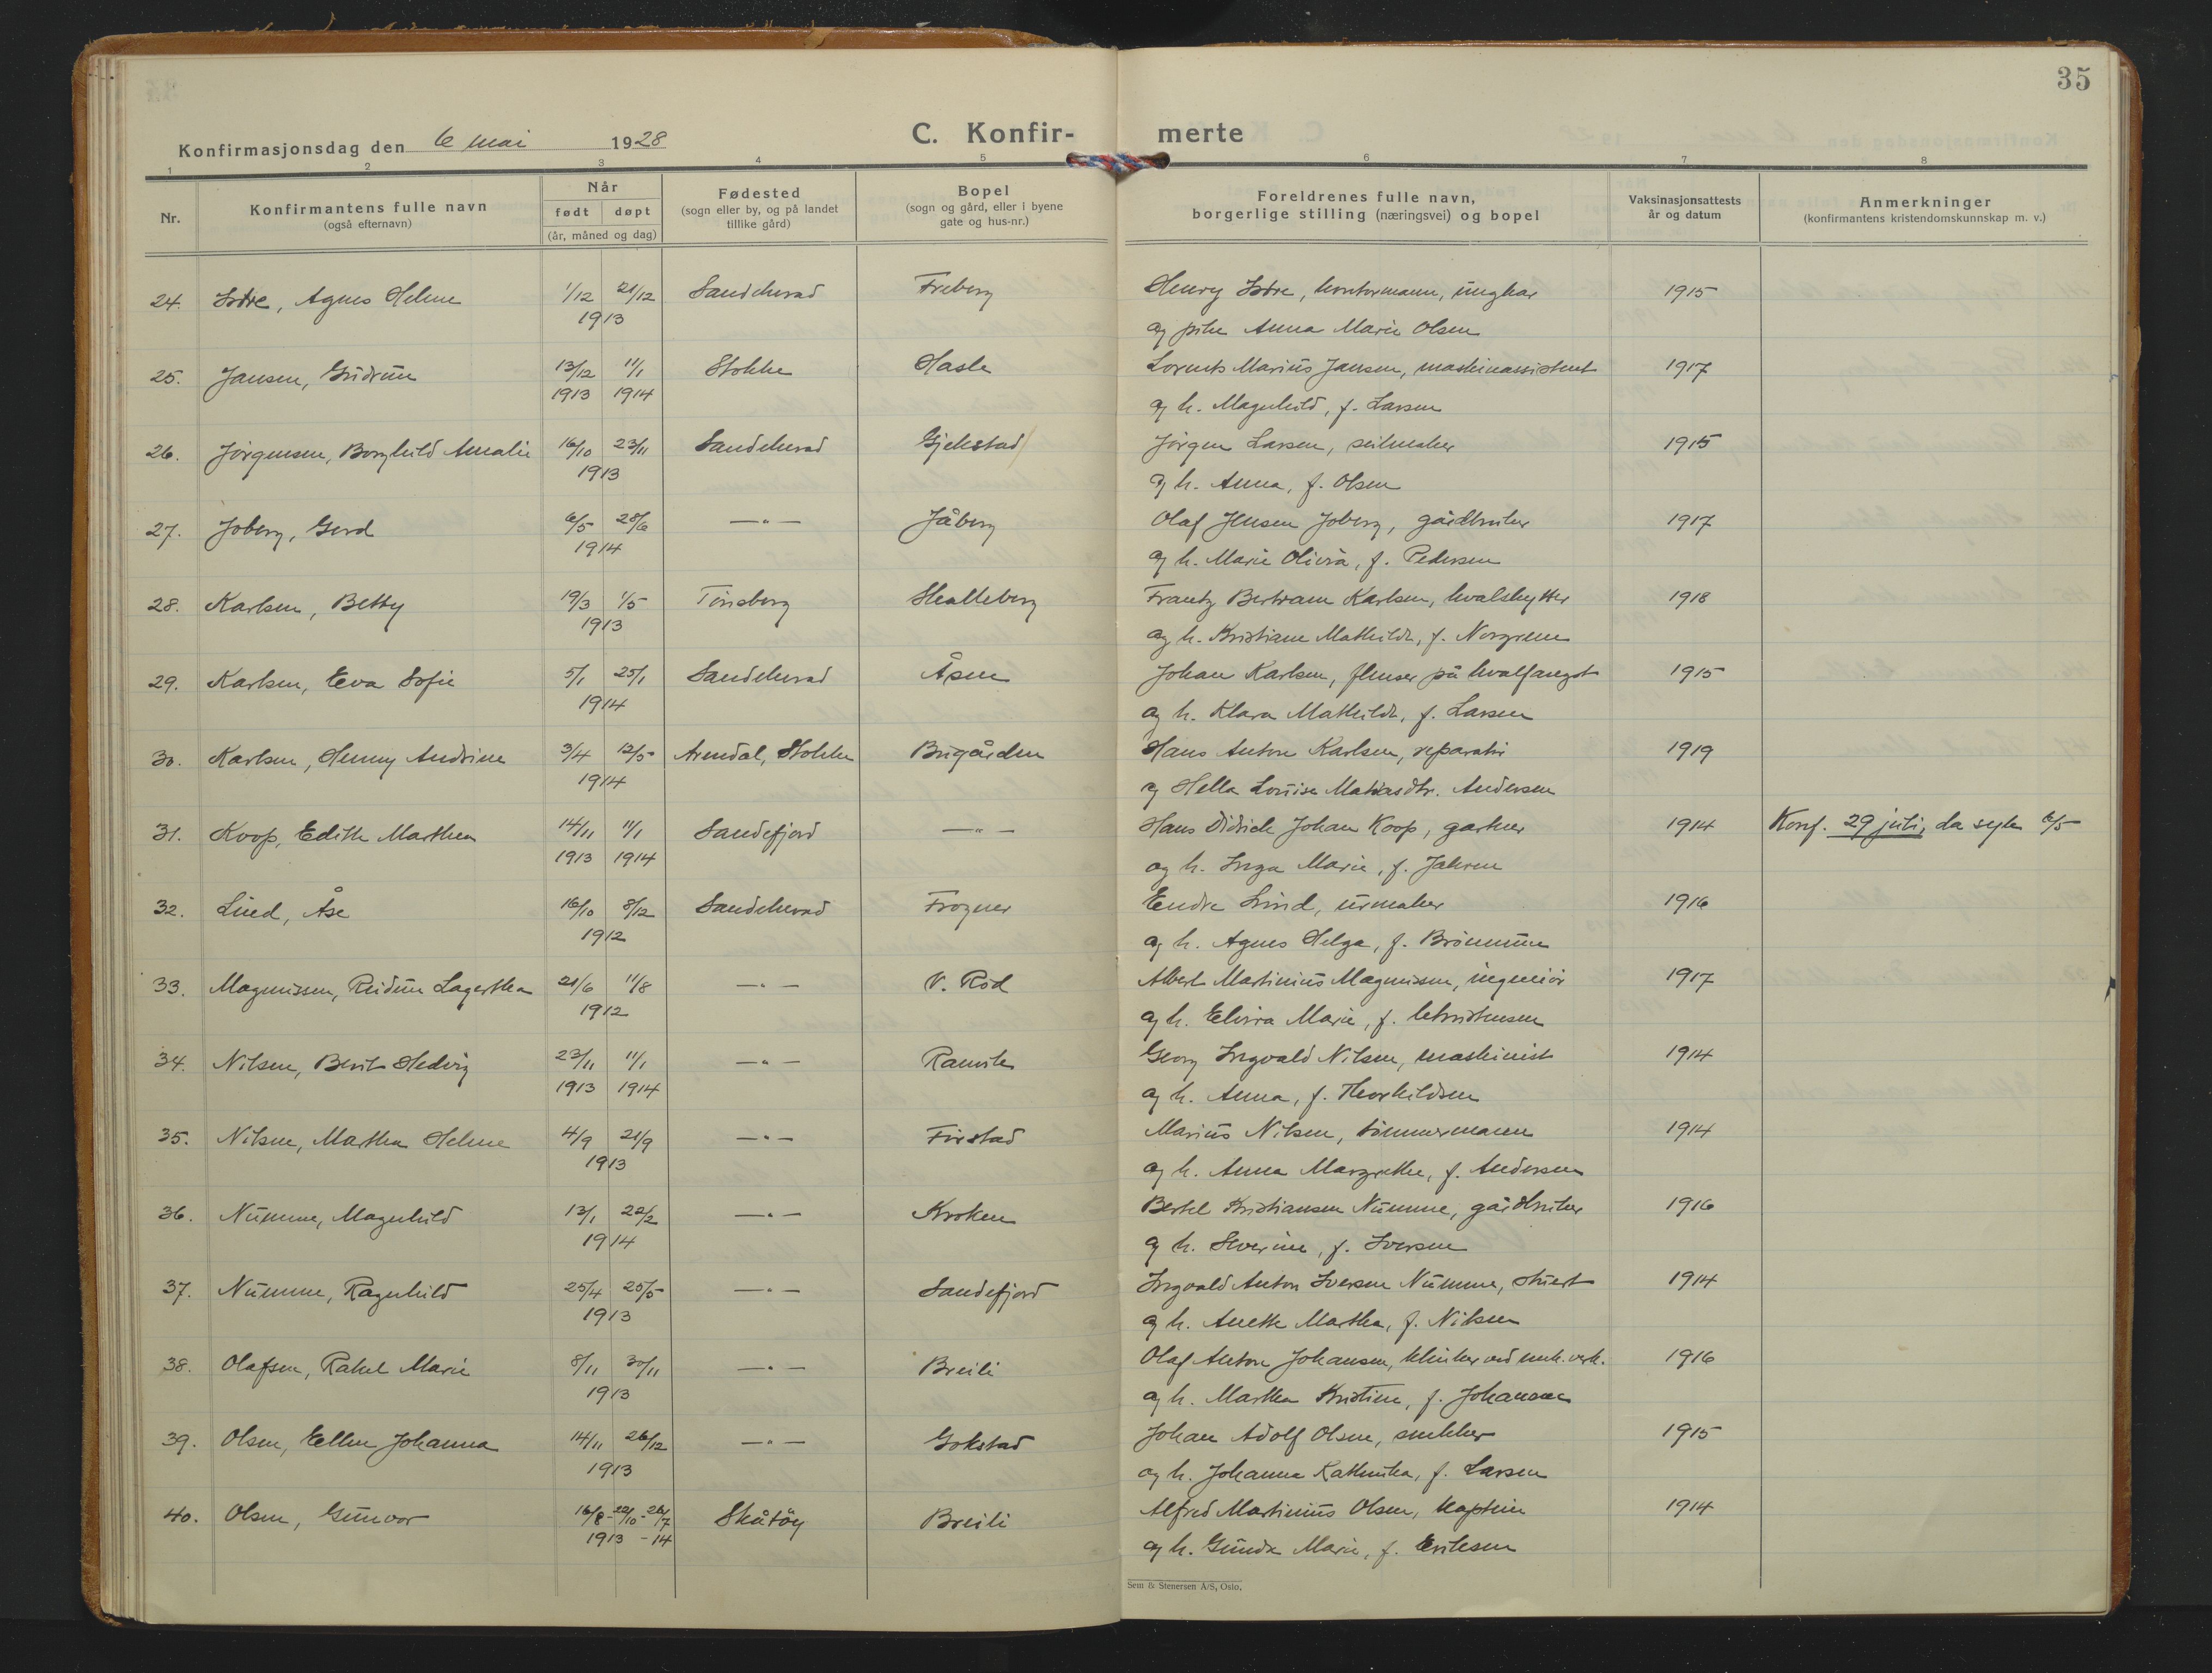 35
Konfirmasjonsdag den 6 mai 1928
C. Konfir- merte
1 2 3 4 5 6 7 8
Nr.
Konfirmantens fulle navn
(også efternavn)
Når
født døpt
(år, måned og dag)
Fødested
(sogn eller by, og på landet
tillike gård)
Bopel
(sogn og gård, eller i byene
gate og hus-nr.)
Foreldrenes fulle navn,
borgerlige stilling (næringsvei) og bopel
Vaksinasjonsattests
år og datum
Anmerkninger
(konfirmantens kristendomskunnskap m. v.)
24. Istre, Agnes Helene 1/12 21/12 Sandeherad Freberg Henry Istre, kontormann, ungkar 1915
1913 og pike Anna Marie Olsen
25. Jansen, Gudrun 13/12 11/1 Stokke Hasle Lorents Marius Jansen, maskinassistent 1917
1913 1914 og h. Magnhild, f. Larsen
26. Jørgensen, Borghild Amalie 16/10 23/11 Sandeherad Gjekstad Jørgen Larsen, seilmaker 1915
1913 og h. Anna, f. Olsen
27. Joberg, Gerd 6/5 28/6 —"— Jåberg Olaf Jensen Joberg, gårdbruker 1917
1914 og h. Marie Olivia, f. Pedersen
28. Karlsen, Betty 19/3 1/5 Tønsberg Skalleberg Frantz Bertram Karlsen, hvalskytter 1918
1913 og h. Kristiane Mathilde, f. Norgreen
29. Karlsen, Eva Sofie 5/1 25/1 Sandeherad Åsen Johan Karlsen, flenser på hvalfangst 1915
1914 og h. Klara Mathilde, f. Larsen
30. Karlsen, Henny Andrine 3/4 12/5 Arendal, Stokke Bugården Hans Anton Karlsen, reparatør 1919
1914 og Hella Louise Matiasdtr. Andersen
31. Koop, Edith Marthea 14/11 11/1 Sandefjord —"— Hans Didrick Johan Koop, gartner 1914 Konf. 29 juli, da syk 6/5
1913 1914 og h. Inga Marie, f. Jahren
32. Lind, Åse 16/10 8/12 Sandeherad Frogner Endre Lind, urmaker 1916
1912 og h. Agnes Helga, f. Brønnum
33. Magnussen, Reidun Lagertha 21/6 11/8 —"— V. Rød Albert Martinius Magnussen, ingeniør 1917
1912 og h. Elvira Marie, f. Christensen
34. Nilsen, Berit Hedvig 23/11 11/1 —"— Ranvik Georg Ingvald Nilsen, maskinist 1914
1913 1914 og h. Anna, f. Thorkildsen
35. Nilsen, Martha Helene 4/9 21/9 —"— Firstad Marius Nilsen, tømmermann 1914
1913 og h. Anna Margrethe, f. Andersen
36. Numme, Magnhild 13/1 22/2 —"— Kroken Bertel Kristiansen Numme, gårdbruker 1916
1914 og h. Severine, f. Iversen
37. Numme, Ragnhild 25/4 25/5 —"— Sandefjord Ingvald Anton Iversen Numme, stuert 1914
1913 og h. Anette Martha, f. Nilsen
38. Olafsen, Rakel Marie 8/11 30/11 —"— Breili Olaf Anton Johansen, klinker ved mek. verk. 1916
1913 og h. Marthea Kristine, f. Johansen
39. Olsen, Ellen Johanna 14/11 26/12 —"— Gokstad Johan Adolf Olsen, snekker 1915
1913 og h. Johanna Kathinka, f. Larsen
40. Olsen, Gunvor 16/8-22/10-26/7 Skåtøy Breili Alfred Martinius Olsen, kaptein 1914
1913 -14 og h. Gunda Marie, f. Eriksen
Sem & Stenersen A/S, Oslo.